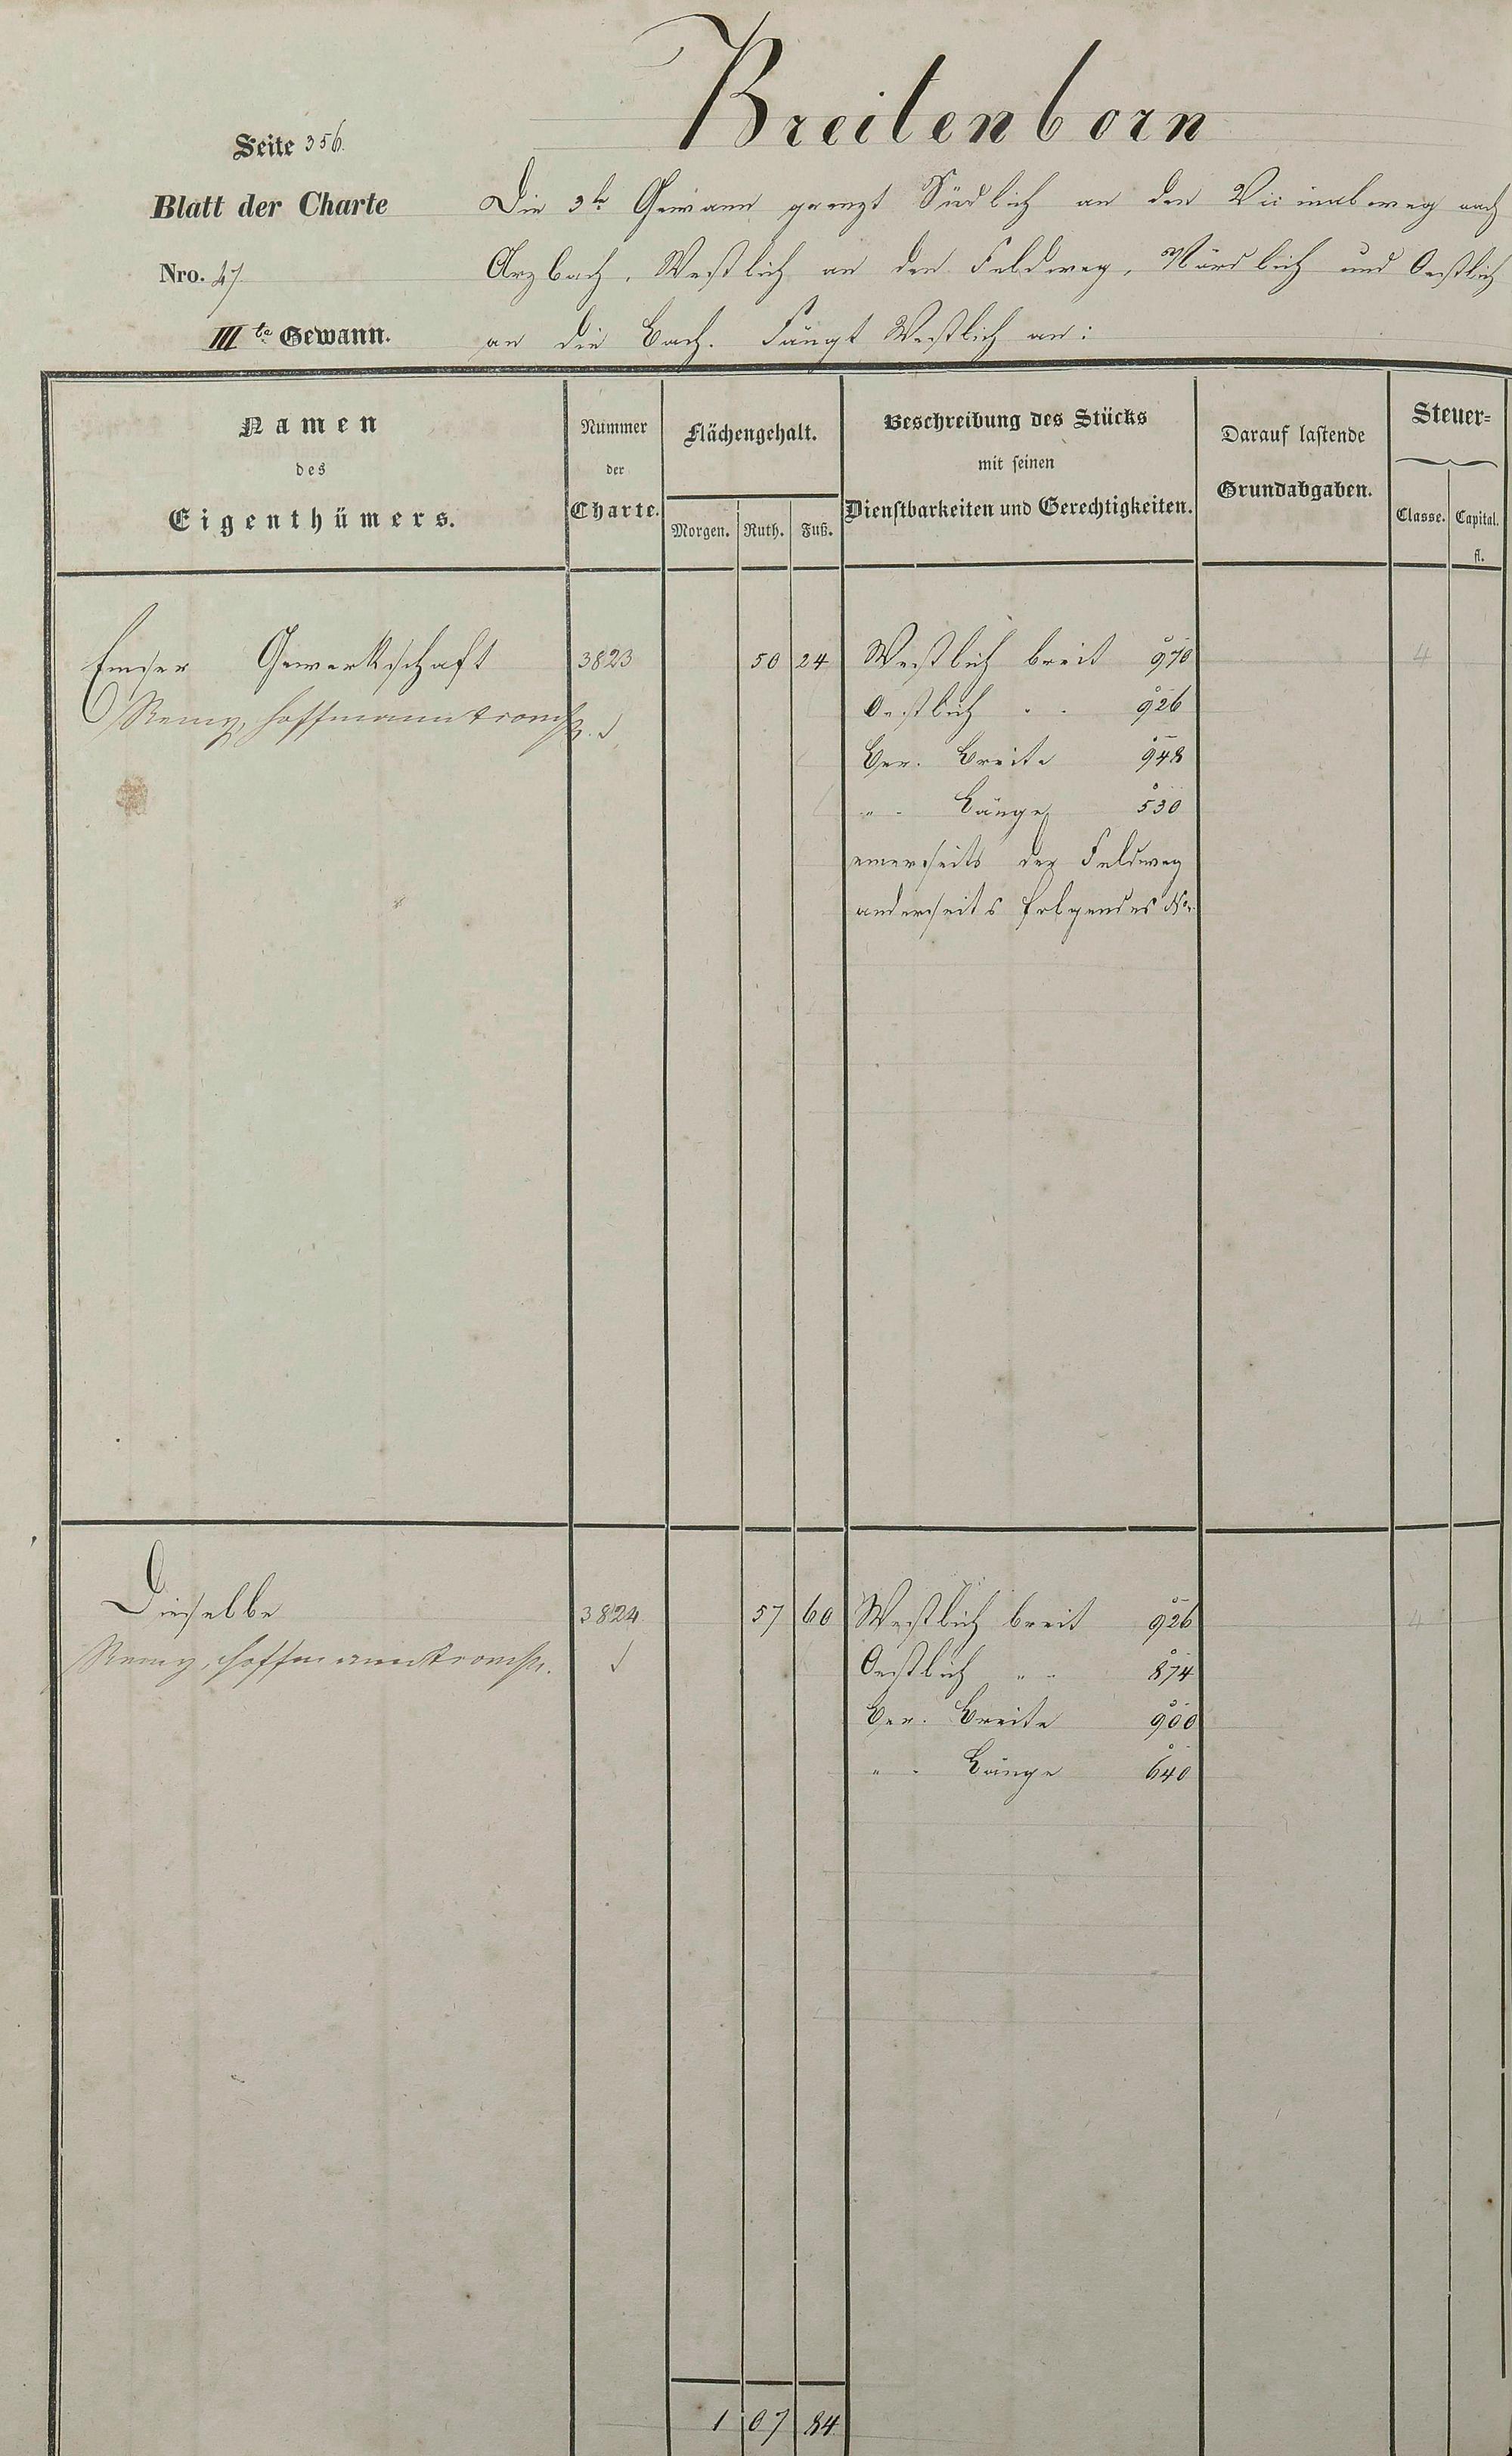 Breitenborn
Seite 356.
Blatt der Charte
Nro. 47
IIIte Gewann.
Die 3te Gewann grenzt Südlich an den Vicinalweg nach
Arzbach, Westlich an den Feldweg, Nördlich und Oestlich
an die Bach. Fängt Westlich an:
Namen
des
Eigenthümers.
Nummer
der
Charte.
Flächengehalt.
Morgen. Ruth. Fuß.
Beschreibung des Stücks
mit seinen
Dienstbarkeiten und Gerechtigkeiten.
Darauf lastende
Grundabgaben.
Steuer=
Classe. Capital.
fl.
Emser Gewerkschaft 3823 50 24 Westlich breit 970 4
Remy, Hoffmann Oestlich " " 926
Ber. Breite 948
" " Länge 530
einerseits der Feldweg
anderseits folgendes No.
Dieselbe 3824 57 60 Westlich breit 926 4
Remy, Hoffmann Oestlich " " 874
Ber. Breite 900
" " Länge 640
1 07 84